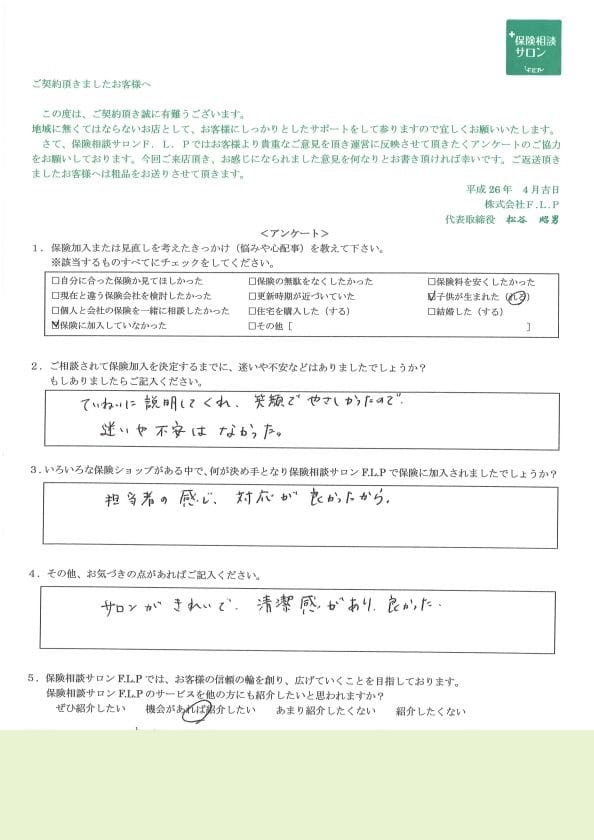 +保険相談
サロン
F.L.P
ご契約頂きましたお客様へ
この度は、ご契約頂き誠に有難うございます。
地域に無くてはならないお店として、お客様にしっかりとしたサポートをして参りますので宜しくお願いいたします。
さて、保険相談サロンF.L.Pではお客様より貴重なご意見を頂き運営に反映させて頂きたくアンケートのご協力
をお願いしております。今回ご来店頂き、お感じになられました意見を何なりとお書き頂ければ幸いです。ご返送頂き
ましたお客様へは粗品をお送りさせて頂きます。
平成26年 4月吉日
株式会社F.L.P
代表取締役 松谷 昭男
<アンケート>
1.保険加入または見直しを考えたきっかけ(悩みや心配事)を教えて下さい。
※該当するものすべてにチェックをしてください。
□自分に合った保険か見てほしかった □保険の無駄をなくしたかった □保険料を安くしたかった
□現在と違う保険会社を検討したかった □更新時期が近づいていた ☑子供が生まれた(れる)
□個人と会社の保険を一緒に相談したかった □住宅を購入した(する) □結婚した(する)
☑保険に加入していなかった □その他[ ]
2.ご相談されて保険加入を決定するまでに、迷いや不安などはありましたでしょうか?
もしありましたらご記入ください。
ていねいに説明してくれ、笑顔でやさしかったので
迷いや不安はなかった。
3.いろいろな保険ショップがある中で、何が決め手となり保険相談サロンF.L.Pで保険に加入されましたでしょうか?
担当者の感じ、対応が良かったから。
4.その他、お気づきの点があればご記入ください。
サロンがきれいで、清潔感があり、良かった。
5.保険相談サロンF.L.Pでは、お客様の信頼の輪を創り、広げていくことを目指しております。
保険相談サロンF.L.Pのサービスを他の方にも紹介したいと思われますか?
ぜひ紹介したい 機会があれば紹介したい あまり紹介したくない 紹介したくない